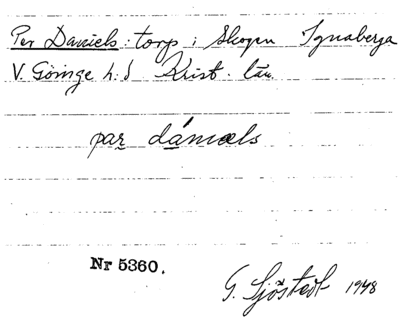 Per Daniels: torp i Skogen Ignaberga
V. Göinge h:d Krist. län
par dániæls
Nr 5360.
G. Sjöstedt 1948